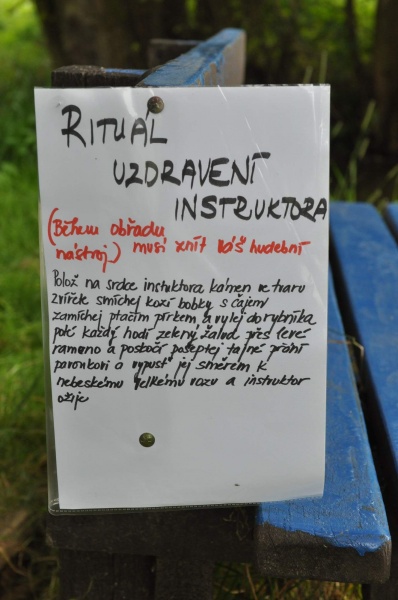 RITUÁL
UZDRAVENÍ
INSTRUKTORA
(Během obřadu
nástroj) musí znít Váš hudební
Polož na srdce instruktora kámen ve tvaru
zvířete smíchej kozí bobky s čajem
zamíchej ptačím pírkem a vylej do rybníka
poté každý hodí zelený žalud přes levé
rameno a poskočí pošeptej tajné přání
paronkovi a vypusť jej směrem k
nebeskému Velkému vozu a instruktor
ožije